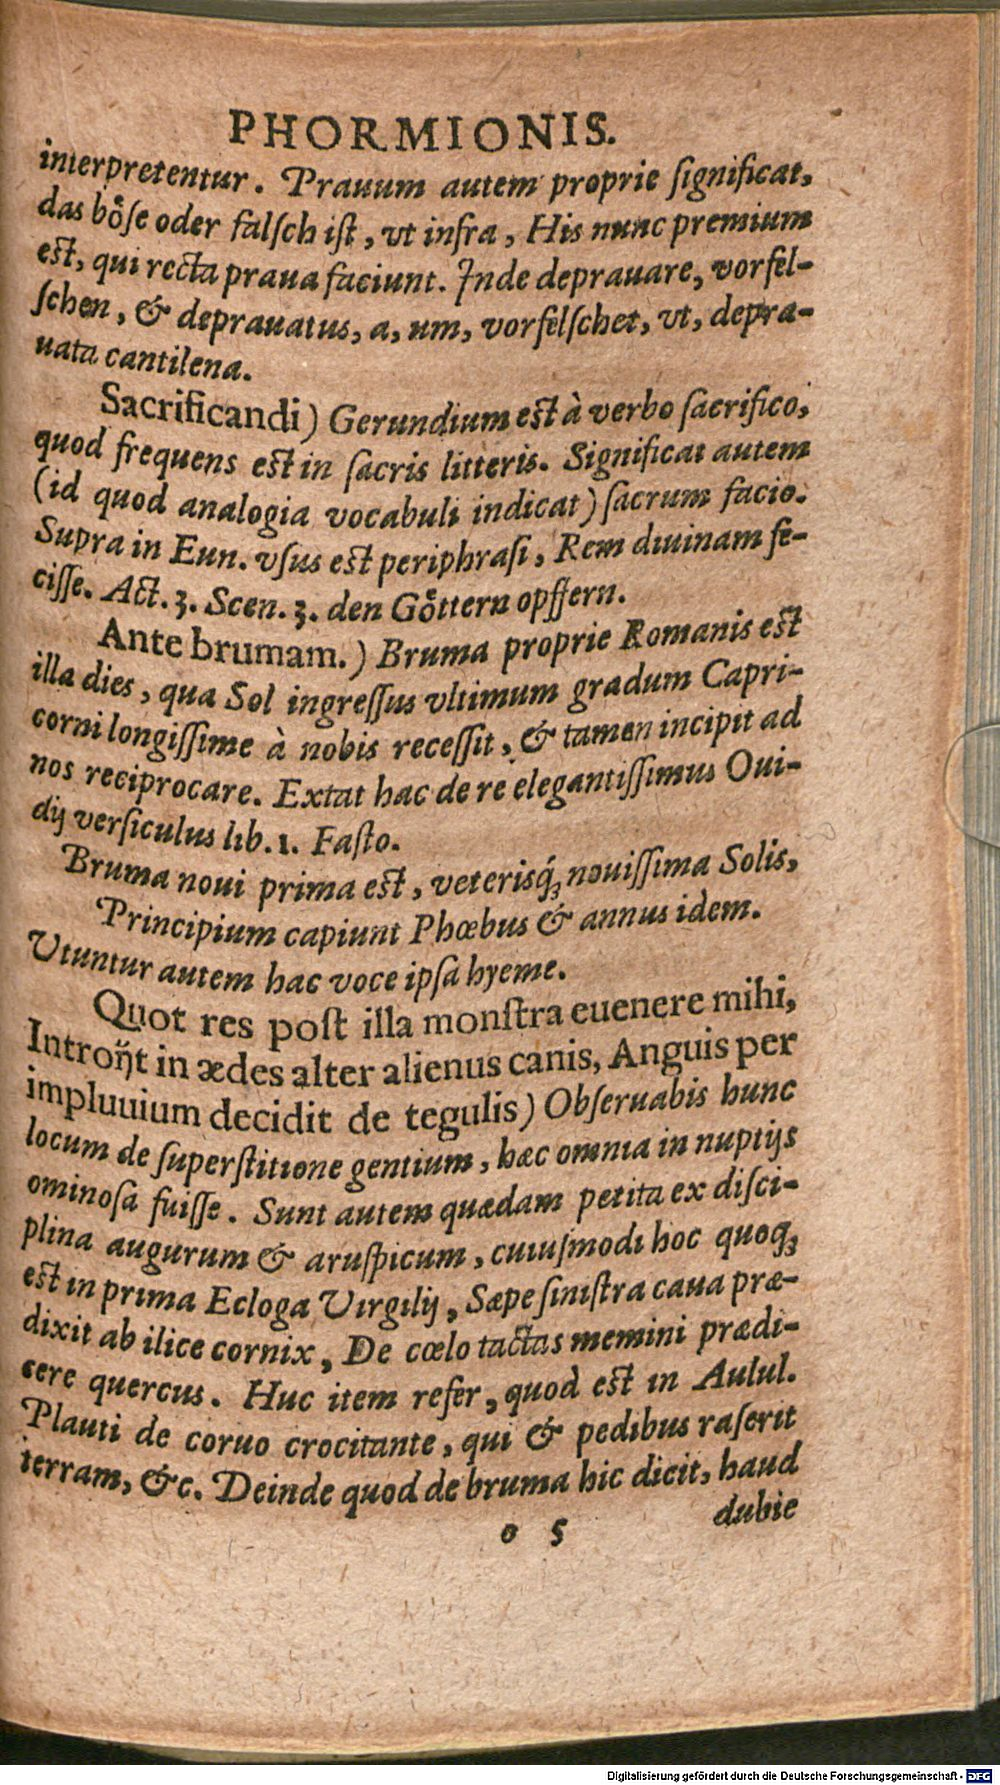 PHORMIONIS.
interpretentur. Prauum autem proprie ſignificat,
das boͤſe oder falſch iſt, vt infra, His nunc premium
eſt, qui recta praua faciunt. Inde deprauare, vorfel-
ſchen, & deprauatus, a, um, vorfelſchet, vt, depra-
uata cantilena.
Sacrificandi) Gerundium eſt à verbo ſacrifico,
quod frequens eſt in ſacris litteris. Significat autem
(id quod analogia vocabuli indicat) ſacrum facio.
Supra in Eun. vſus eſt periphraſi, Rem diuinam fe-
ciſſe. Act. 3. Scen. 3. den Goͤttern opffern.
Ante brumam.) Bruma proprie Romanis eſt
illa dies, qua Sol ingreſſus vltimum gradum Capri-
corni longiſſime à nobis receſſit, & tamen incipit ad
nos reciprocare. Extat hac de re elegantiſſimus Oui-
dij verſiculus lib. 1. Faſto.
Bruma noui prima eſt, veterisq́ꝫ nouiſſima Solis,
Principium capiunt Phœbus & annus idem.
Utuntur autem hac voce ipſa hyeme.
Quot res poſt illa monſtra euenere mihi,
Introijt in ædes alter alienus canis, Anguis per
impluuium decidit de tegulis) Obſeruabis hunc
locum de ſuperſtitione gentium, hæc omnia in nuptijs
ominoſa fuiſſe. Sunt autem quædam petita ex diſci-
plina augurum & aruſpicum, cuiuſmodi hoc quoqꝫ
eſt in prima Ecloga Virgilij, Sæpe ſiniſtra caua præ-
dixit ab ilice cornix, De cœlo tactas memini prædi-
cere quercus. Huc item refer, quod eſt in Aulul.
Plauti de coruo crocitante, qui & pedibus raſerit
terram, &c. Deinde quod de bruma hic dicit, haud
o 5 dubie
Digitalisierung gefördert durch die Deutsche Forschungsgemeinschaft - DFG